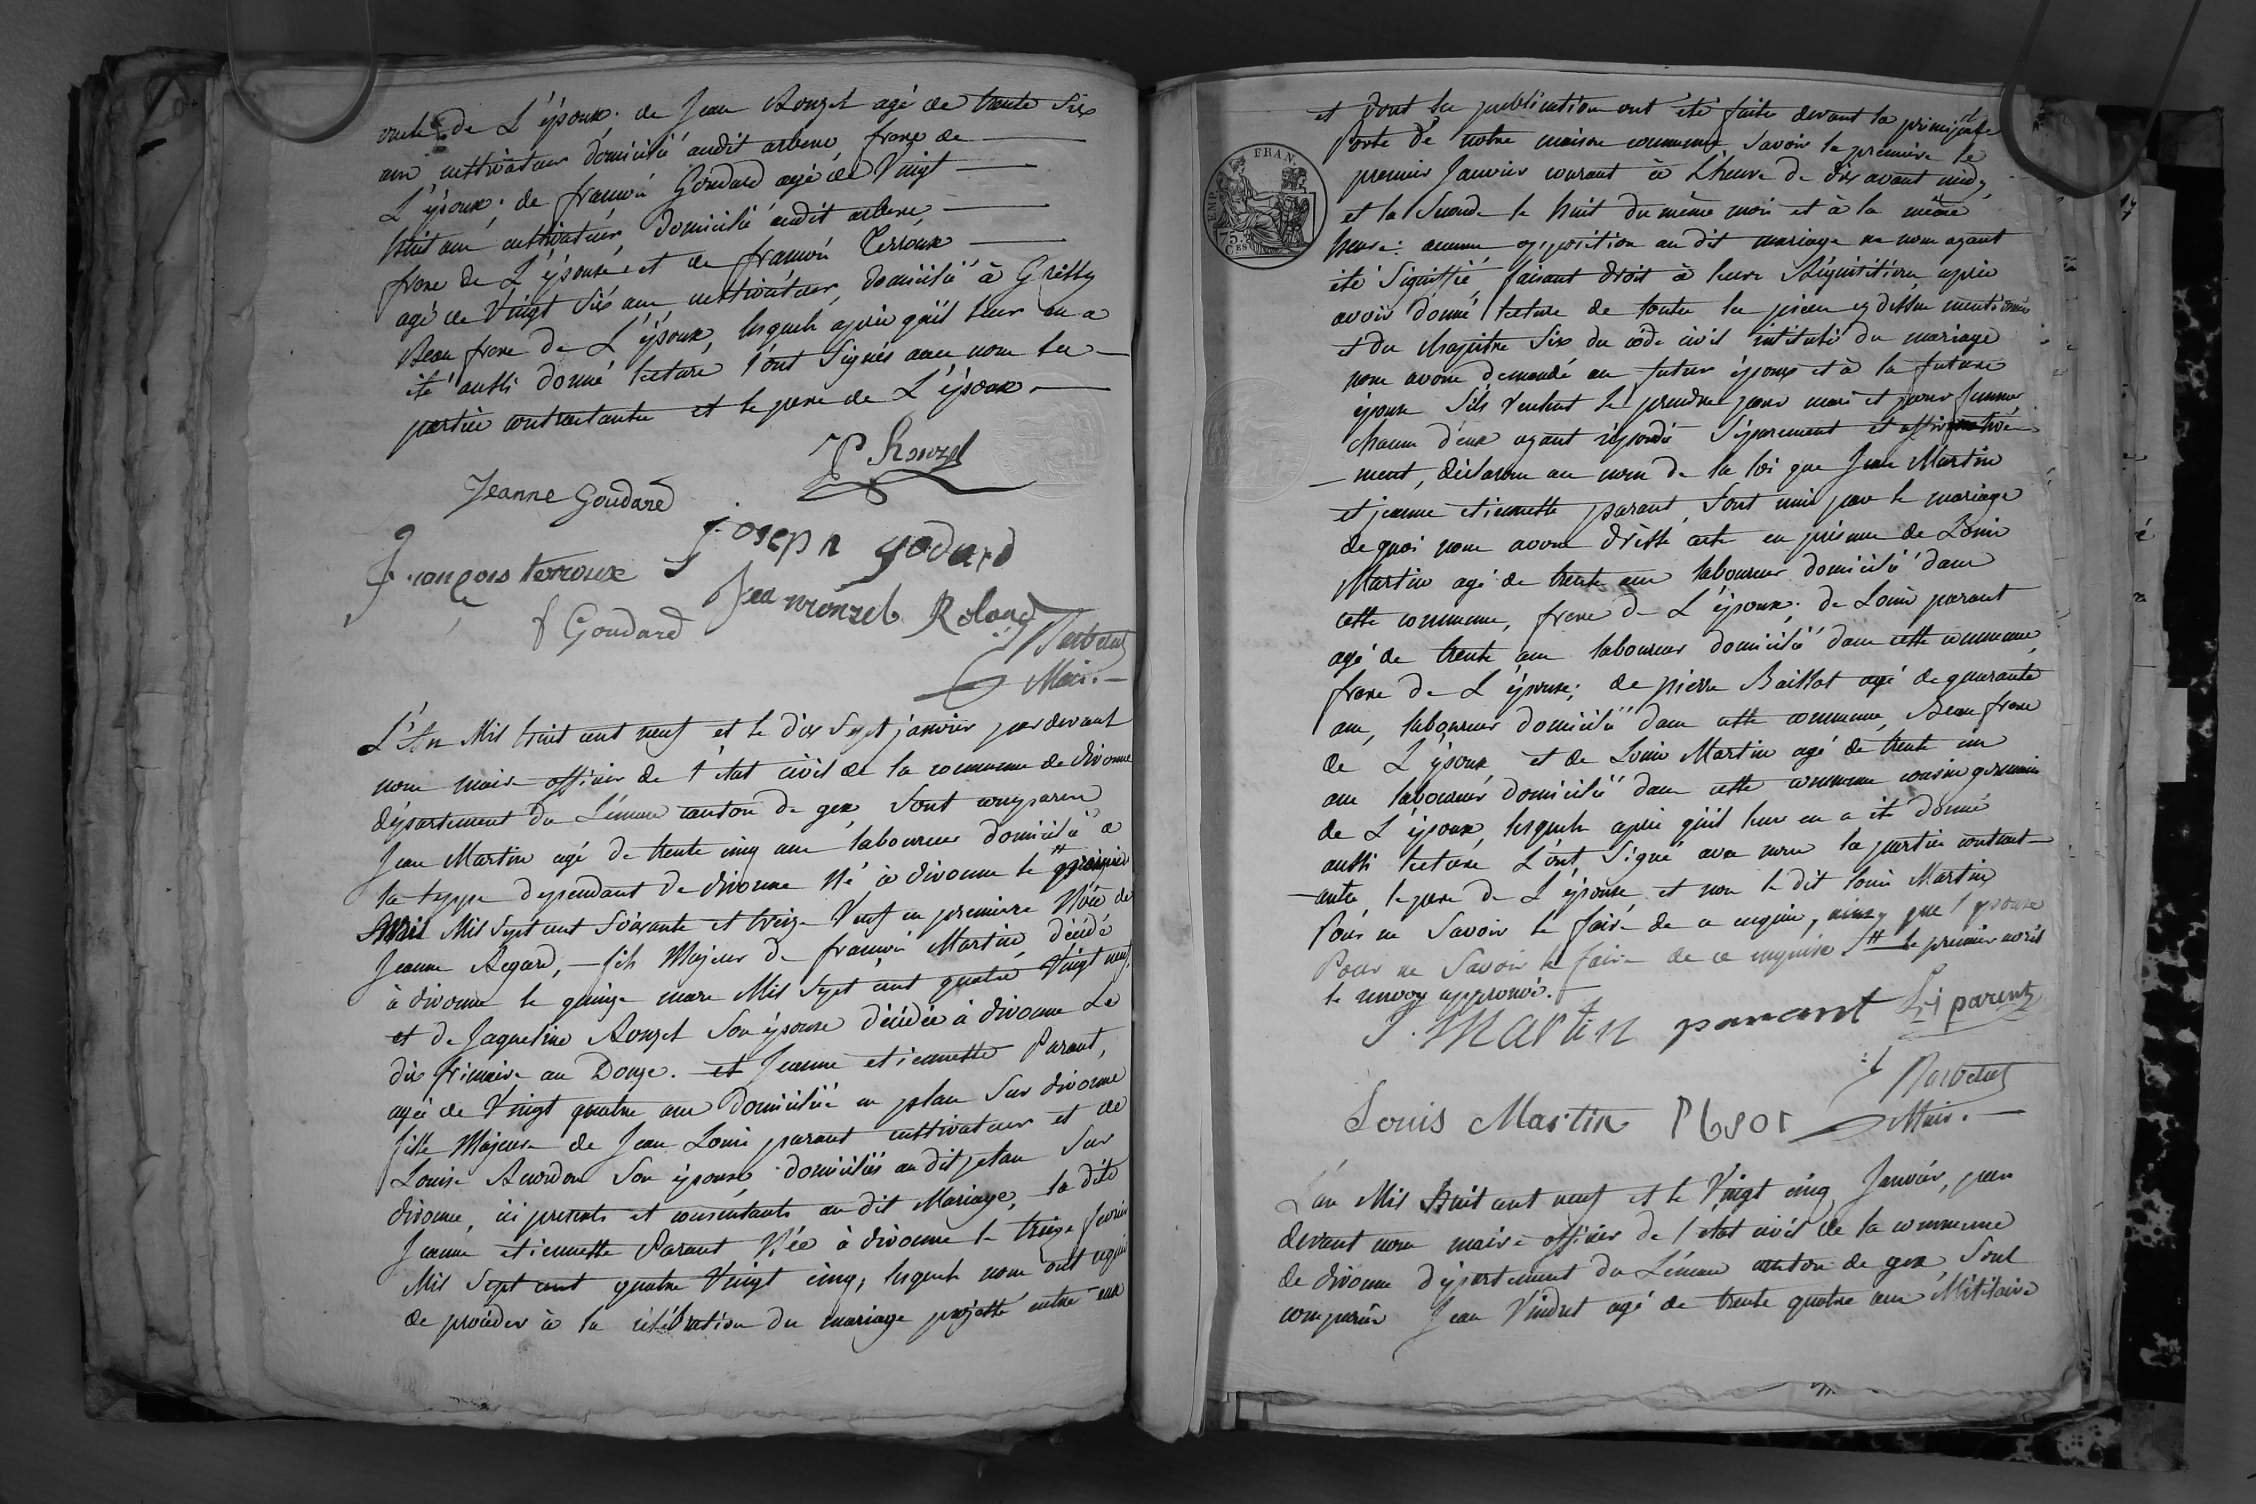 oncle de L'époux. de Jean Rouzet agé de trente Six
ans cultivateur domicilié audit arbere, frere de
L'époux. de françois Goudard agé de Vingt
huit ans cultivateur domicilié audit arbere,
frere de L'épouse et de françois Terroux
agé de Vingt Six ans cultivateur, domicilié à Grilly
Beau frere de L'époux, lesquels après qu'il leur en a
été aussi donné lecture l'ont Signés avec nous les
parties contractantes et le pere de L'époux.
P Rouzet
Jeanne Goudard
joseph godard
françois terroux
Jean rouzet Roland
f Goudard
Maire.
L'An Mil huit cent neuf et le dix Sept janvier par devant
nous maire officier de l'état civil de la commune de divonne
département du Léman canton de gex, Sont comparus
Jean Martin agé de trente cinq ans laboureur domicilié à
la teppe dependant de divonne Né à divonne le
Avril Mil Sept cent Soixante et treize Veuf en premiere Nôce de
Jeanne Regard, fils Majeur de françois Martin, décédé
à divonne le quinze mars Mil Sept cent quatre Vingt neuf,
et de Jaqueline Rouzet Son épouse décédée à divonne Le
dix frimaire an Douze. et Jeanne etiennette Parant,
agée de Vingt quatre ans domiciliée en plan Sur divonne
fille Majeure de Jean Louis parant cultivateur et de
Louise Son épouse domiciliés au dit plan Sur
divonne, ici presents et consentants au dit Mariage, la dite
Jeanne etiennette Parant Née à divonne le treize fevrier
Mil Sept cent quatre Vingt cinq, lesquels nous ont requis
de procéder à la célébration du mariage projetté entre eux
et dont les publications ont été faites devant la principale
Porte de notre maison commune, Savoir la premiere le
premier Janvier courant à L'heure de dix avant midy,
et la Seconde le huit du même mois et à la même
heure: aucune opposition au dit mariage ne nous ayant
été Signiffié, faisant droit à leurs Réquisition après
avoir donné lecture de toutes les pieces cy dessus mentionnées
et du chapitre Six du code civil intitulé du mariage
nous avons demandé au futur époux et à la future
épouse S'ils veulent Se prendre pour mari et pour femme
chacun d'eux ayant répondu Séparement et affirmative
- ment, déclarons au nom de la loi que Jean Martin
et jeanne etiennette parant, Sont unis par le mariage
de quoi nous avons dréssé acte en présence de Louis
Martin agé de trente ans laboureur domicilié dans
cette commune, frere de L'époux. de Louis parant
agé de trente ans laboureur domicilié dans cette commune,
frere de L'épouse; de pierre Baillot agé de quarante
ans, laboureur domicilié dans cette commune, Beau frere
de L'époux et de Louis Martin agé de trente un
ans laboureur domicilié dans cette commune cousin germain
de L'époux, lesquels après qu'il leur en a été donné
aussi lecture L'ont Signé avec nous la partie contract-
-ante le pere de L'épouse et non le dit louis Martin
Pour ne Savoir le faire de ce enquis, ainsy que l'épouse
Pour ne Savoir le faire de ce enquise # le premier avril
le renvoy approuvé.
J. Martin parant Ls parent
Louis Martin
Maire.
L'an Mil huit cent neuf et le Vingt cinq Janvier, par
devant nous maire officier de l'état civil de la commune
de divonne département du Léman canton de gex, Sont
comparus Jean Vindret agé de trente quatre ans Militaire